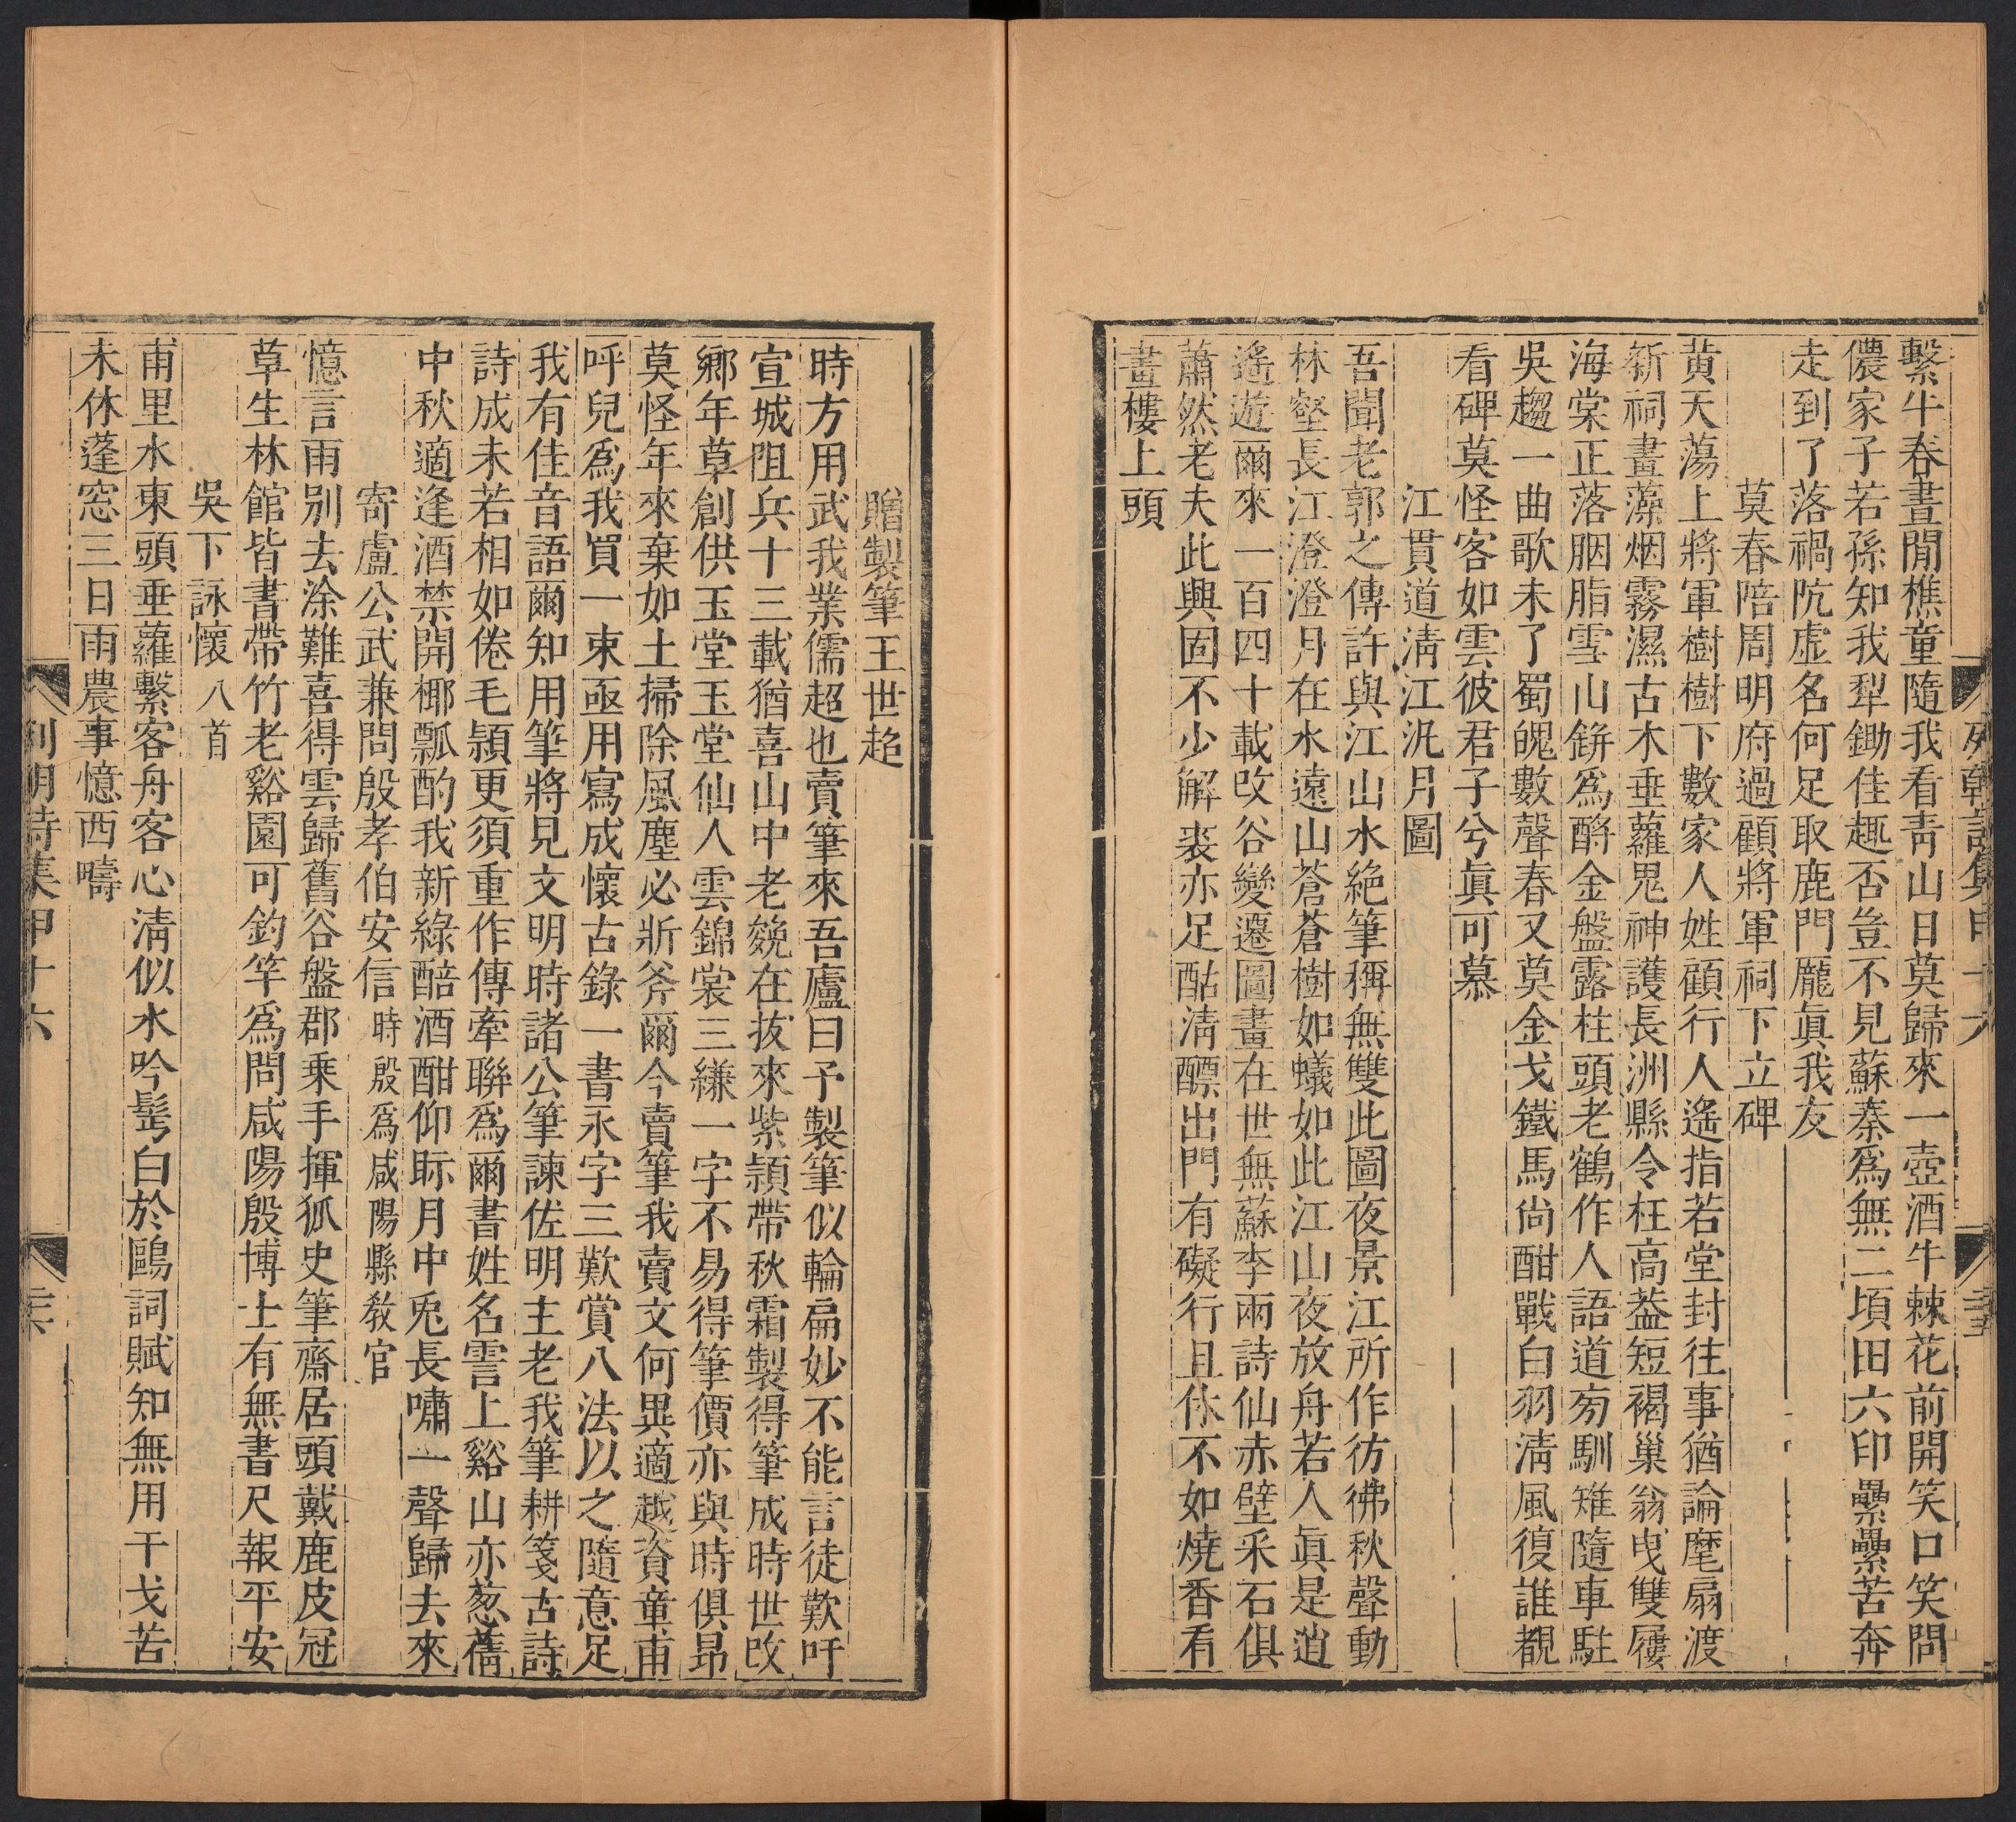 繫牛春晝閒樵童隨我看青山日莫歸來一壺酒牛棘花前開笑口笑問
儂家子若孫知我犁鋤佳趣否豈不見蘇秦爲無二頃田六印纍纍苦奔
走到了落禍阬虛名何足取鹿門龎眞我友
莫春陪周明府過顧將軍祠下立碑
黄天蕩上將軍樹樹下數家人姓顧行人遙指若堂封往事猶論麾扇渡
新祠畫藻烟霧濕古木垂蘿鬼神護長洲縣令枉高葢短褐巢翁曳雙屨
海棠正落胭脂雪山缾爲酹金盤露柱頭老鶴作人語道旁馴雉隨車駐
吳趨一曲歌未了蜀魄數聲春又莫金戈鐵馬尙酣戰白羽淸風復誰覩
看碑莫怪客如雲彼君子兮眞可慕
江貫道淸江汎月圖
吾聞老郭之傳許與江山水絶筆稱無雙此圖夜景江所作彷彿秋聲動
林壑長江澄澄月在水遠山蒼蒼樹如蟻如此江山夜放舟若人眞是逍
遙遊爾來一百四十載改谷變遷圖畫在世無蘇李兩詩仙赤壁采石俱
蕭然老夫此興固不少解裘亦足酤淸醥出門有礙行且休不如燒香看
畫樓上頭
列朝詩集甲十六
贈製筆王世超
時方用武我業儒超也賣筆來吾廬曰予製筆似輪扁妙不能言徒歎吁
宣城阻兵十三載猶喜山中老㕙在拔來紫穎帶秋霜製得筆成時世改
鄉年草創供玉堂玉堂仙人雲錦裳三縑一字不易得筆價亦與時俱昂
莫怪年來棄如土掃除風塵必斨斧爾今賣筆我賣文何異適越資章甫
呼兒爲我買一束亟用寫成懷古錄一書永字三歎賞八法以之隨意足
我有佳音語爾知用筆將見文明時諸公筆諫佐明主老我筆耕箋古詩
詩成未若相如倦毛穎更須重作傳牽聯爲爾書姓名霅上谿山亦葱蒨
中秋適逢酒禁開椰瓢酌我新綠醅酒酣仰眎月中兎長嘯一聲歸去來
寄盧公武兼問殷孝伯安信 時殷爲咸陽縣敎官
憶言雨别去涂難喜得雲歸舊谷盤郡乗手揮狐史筆齋居頭戴鹿皮冠
草生林館皆書帶竹老谿園可釣竿爲問咸陽殷博士有無書尺報平安
吳下詠懷 八首
甫里水東頭垂蘿繫客舟客心淸似水吟髩白於鷗詞賦知無用干戈苦
未休蓬窓三日雨農事憶西疇
列朝詩集甲十六